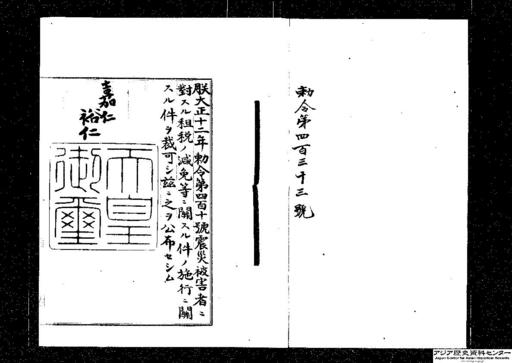 勅令第四百三十三號
朕大正十二年勅令第四百十號震災被害者ニ
對スル租税ノ減免等ニ關スル件ノ施行ニ關
スル件ヲ裁可シ茲ニ之ヲ公布セシム
嘉仁
裕仁
天皇
御璽
アジア歴史資料センター
Japan Center for Asian Historical Records